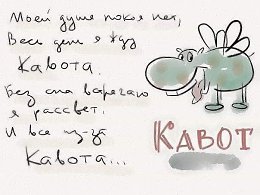 Моей душе покоя нет,
Весь день я жду
Кавота.
Без сна встречаю
я рассвет.
И все из-за
Кавота...
КАВОТ